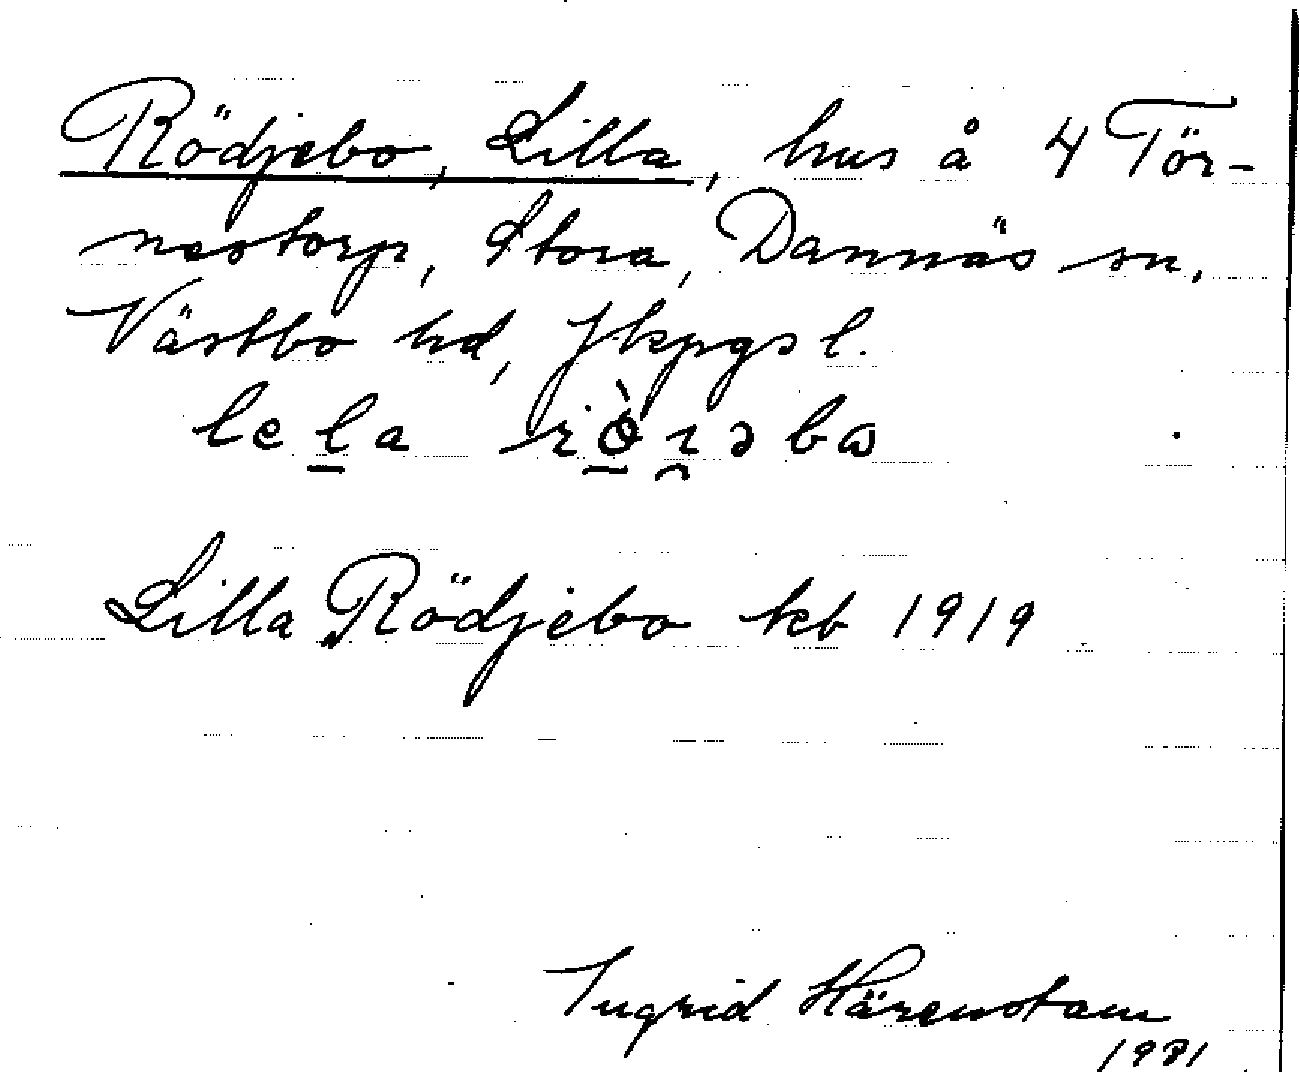 Rödjebo, Lilla, hus å 4 Tör-
nestorp, Stora, Dannäs sn,
Västbo hd, Jkpgs l.
Lilla Rödjebo kb 1919
Ingrid Härenstam
1981